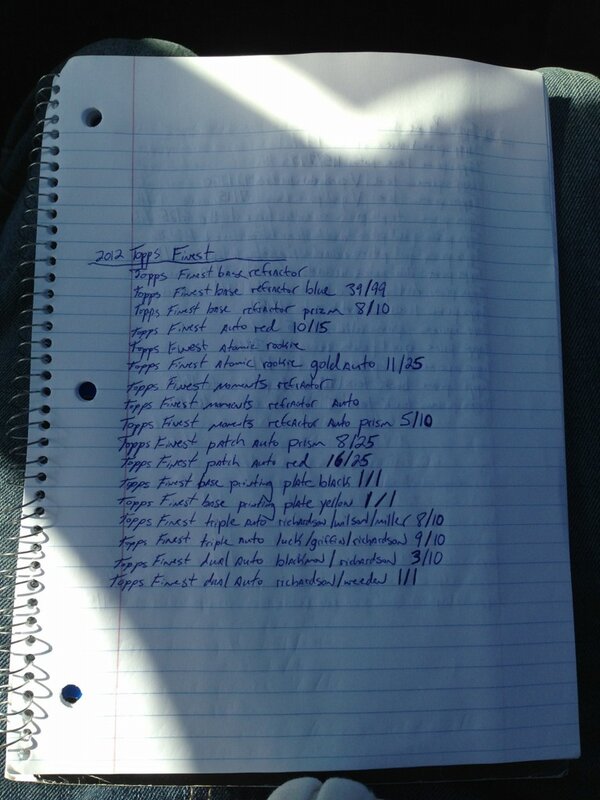 2012 Topps Finest
Topps Finest base refractor
Topps Finest base refractor blue 39/99
Topps Finest base refractor prizm 8/10
Topps Finest Auto red 10/15
Topps Finest Atomic rookie
Topps Finest Atomic rookie gold Auto 11/25
Topps Finest moments refractor
Topps Finest moments refractor Auto
Topps Finest moments refractor Auto prism 5/10
Topps Finest patch Auto prism 8/25
Topps Finest patch Auto red 16/25
Topps Finest base printing plate black 1/1
Topps Finest base printing plate yellow 1/1
Topps Finest triple Auto richardson/wilson/miller 8/10
Topps Finest triple Auto luck/griffin/richardson 9/10
Topps Finest dual Auto blackmon/richardson 3/10
Topps Finest dual Auto richardson/weeden 1/1